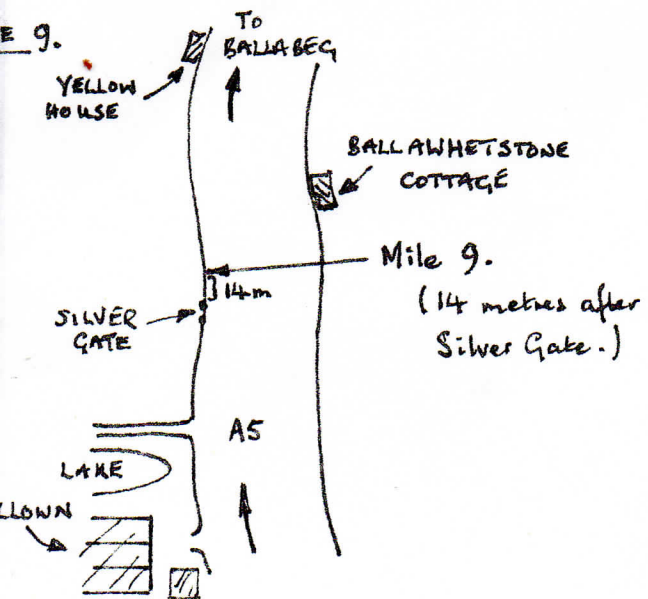 9.
TO
BALLABEG
YELLOW
HOUSE
BALLAWHETSTONE
COTTAGE
Mile 9.
(14 metres after
Silver Gate.)
14m
SILVER
GATE
A5
LAKE